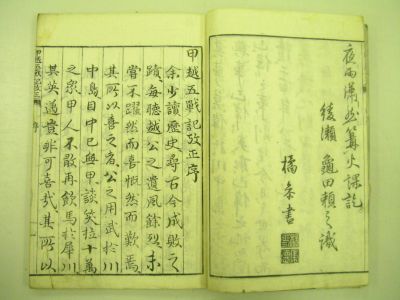 夜雨瀟然篝火謀記
後瀬 龜田頼之識
橘粂書
甲越五戰記攷正序
余少讀歷史尋古今成敗之
蹟每聽越公之遺風餘烈未
嘗不躍然而喜慨然而歎焉
其所以喜之者公之用武於川
中島目中已無甲談笑拉十萬
之衆甲人不敢再飲馬於犀川
其英邁實非可喜哉其所以
甲越五戰記攷正
序